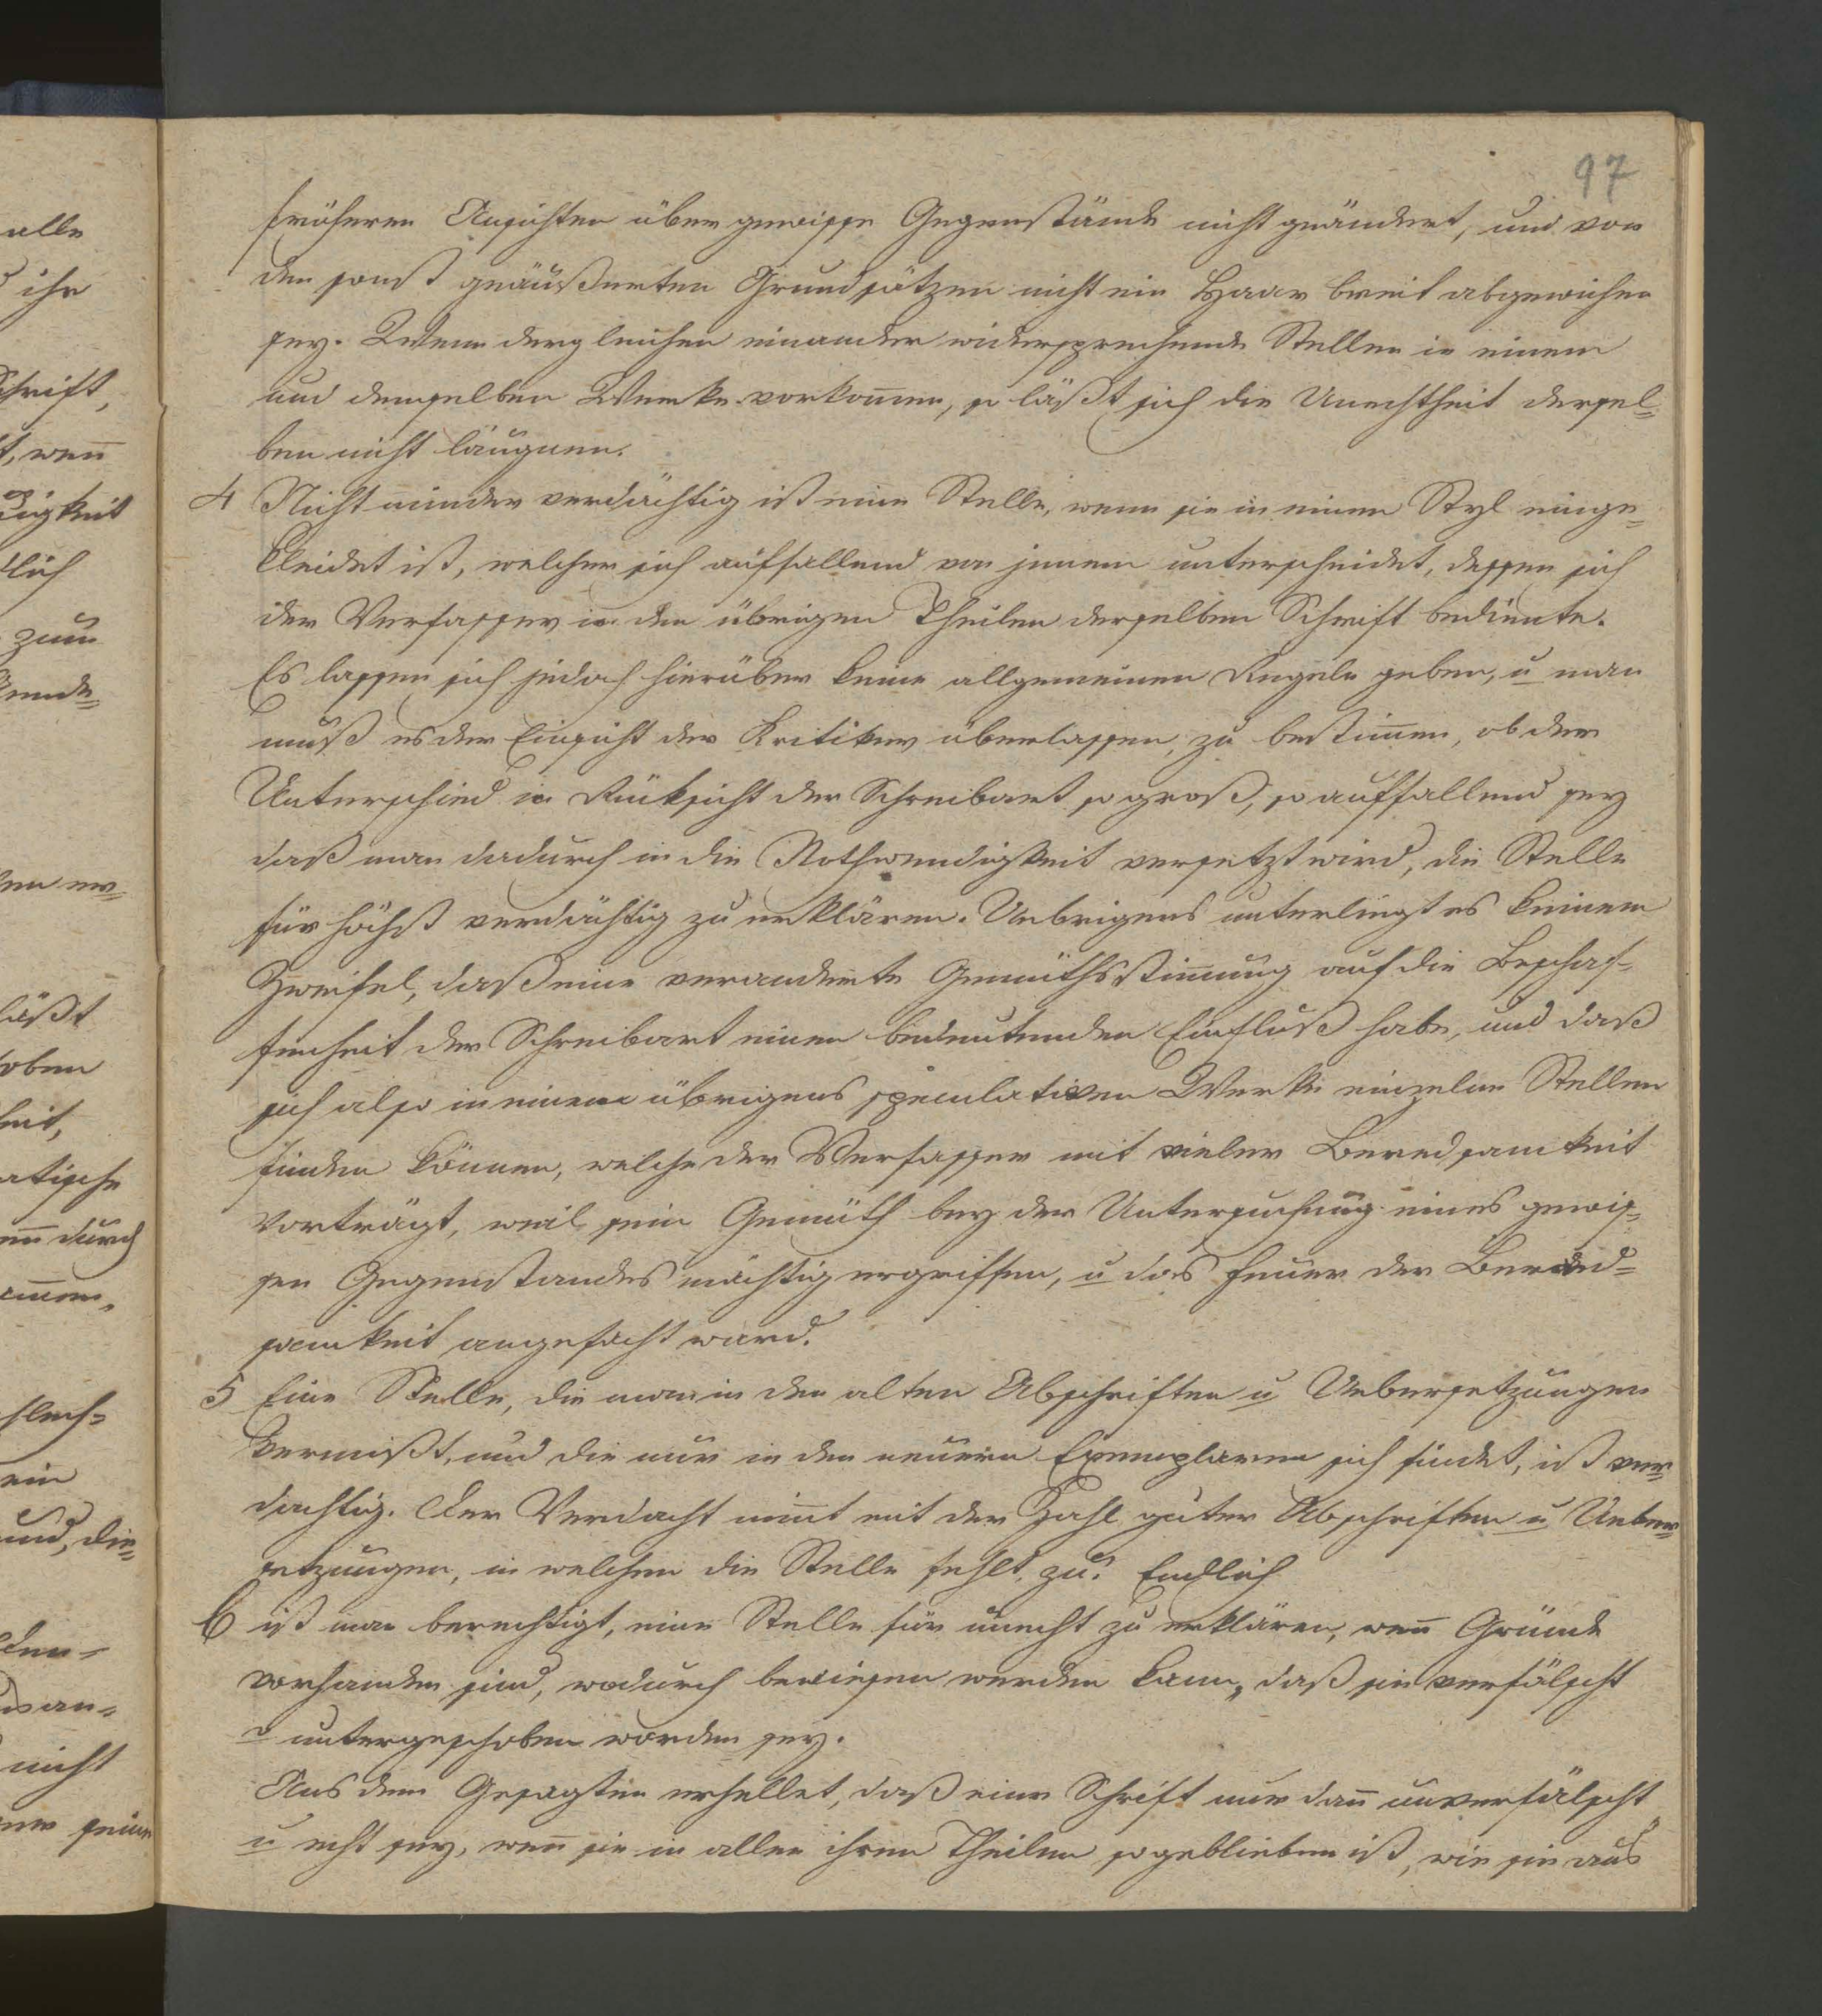 97
früheren Ansichten über gewisse Gegenstände nicht geändert, und von
den sonst geäußerten Grundsätzen nicht ein Haar breit abgewichen
sey. Wenn dergleichen einander widersprechende Stellen in einem
und demselben Werke vorkom̄en, so läßt sich die Unechtheit dersel=
ben nicht läugnen.
4 Nicht minder verdächtig ist eine Stelle, wenn sie in einen Styl einge=
kleidet ist, welcher sich auffallend von jenem unterscheidet, dessen sich
der Verfasser in den übrigen Theilen derselben Schrift bediente.
Es lassen sich jedoch hierüber keine allgemeinen Regeln geben, u man
muß es der Einsicht der Kritiker überlassen, zu bestim̄en, ob der
Unterschied in Rücksicht der Schreibart so groß, so auffallend sey
daß man dadurch in die Nothwendigkeit versetzt wird, die Stelle
für höchst verdächtig zu erklären. Uebrigens unterliegt es keinem
Zweifel, daß eine veranderte Gemüthsstim̄ung auf die Beschaf=
fenheit der Schreibart einen bedeutenden Einfluß habe, und daß
sich also in einem übrigens speculativen Werke einzelne Stellen
finden können, welche der Verfasser mit vieler Beredsamkeit
vorträgt, weil sein Gemüth bey der Untersuchung eines gewis=
sen Gegenstandes mächtig ergriffen, u das Feuer der Bered=
samkeit angefacht ward.
5 Eine Stelle, die man in den alten Abschriften u Uebersetzungen
vermißt, und die nur in den neuern Exemplaren sich findet, ist ver=
dachtig. Der Verdacht nim̄t mit der Zahl guter Abschriften u Ueber=
setzungen, in welchen die Stelle fehlt, zu. Endlich
6 ist man berechtigt, eine Stelle für unecht zu erklären, wen̄ Gründe
vorhanden sind, wodurch bewiesen werden kann, daß sie verfälscht
o untergeschoben worden sey.
Aus dem Gesagten erhellet, daß eine Schrift nur dan̄ unverfälscht
u echt sey, wen̄ sie in allen ihren Theilen so geblieben ist, wie sie aus
alle
ihr
Schrift,
t, wen̄
digkeit
dlich
zum
läßt
oben
heit,
atische
en̄ durch
ein
und, die=
nicht